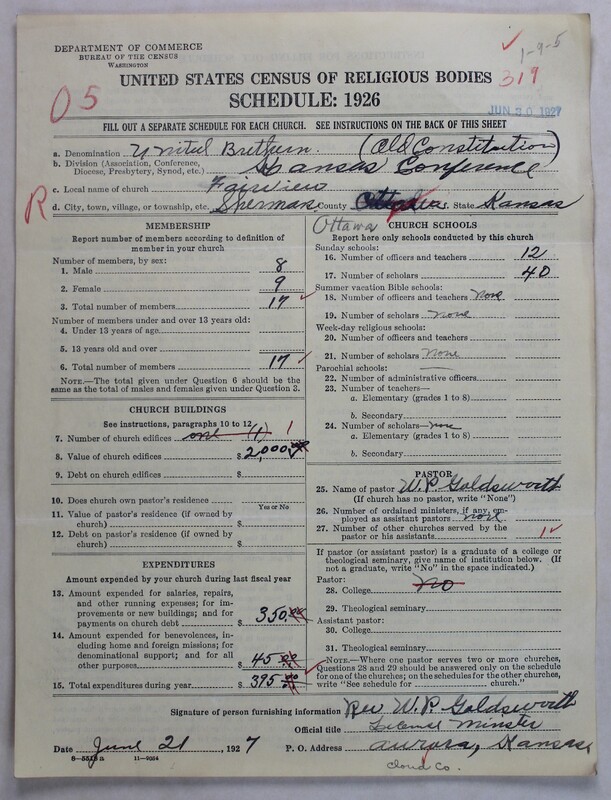 DEPARTMENT OF COMMERCE
BUREAU OF THE CENSUS
WASHINGTON
1-9-5
UNITED STATES CENSUS OF RELIGIOUS BODIES 319
05
SCHEDULE: 1926
JUN 30 1927
FILL OUT A SEPARATE SCHEDULE FOR EACH CHURCH. SEE INSTRUCTIONS ON THE BACK OF THIS SHEET
a. Denomination United Brethern. (Old Constitution)
b. Division (Association, Conference, Diocese, Presbytery, Synod, etc.) Kansas Conference
c. Local name of church Fairview
R
d. City, town, village, or township, etc. Sherman County Ottawa State Kansas
MEMBERSHIP
Report number of members according to definition of
member in your church
Number of members, by sex:
1. Male 8
2. Female 9
3. Total number of members 17
Number of members under and over 13 years old:
4. Under 13 years of age
5. 13 years old and over
6. Total number of members 17
NOTE.—The total given under Question 6 should be the
same as the total of males and females given under Question 3.
CHURCH BUILDINGS
See instructions, paragraphs 10 to 12
7. Number of church edifices one (1) 1
8. Value of church edifices $ 2,000
9. Debt on church edifices $
10. Does church own pastor's residence
Yes or No
11. Value of pastor's residence (if owned by
church) $
12. Debt on pastor's residence (if owned by
church) $
EXPENDITURES
Amount expended by your church during last fiscal year
13. Amount expended for salaries, repairs,
and other running expenses; for im-
provements or new buildings; and for
payments on church debt $ 350.00
14. Amount expended for benevolences, in-
cluding home and foreign missions; for
denominational support; and for all
other purposes $ 45 00
15. Total expenditures during year $ 395 00
Ottawa CHURCH SCHOOLS
Report here only schools conducted by this church
Sunday schools:
16. Number of officers and teachers 12
17. Number of scholars 40
Summer vacation Bible schools:
18. Number of officers and teachers None
19. Number of scholars None
Week-day religious schools:
20. Number of officers and teachers
21. Number of scholars None
Parochial schools:
22. Number of administrative officers
23. Number of teachers—
a. Elementary (grades 1 to 8)
b. Secondary
24. Number of scholars— None
a. Elementary (grades 1 to 8)
b. Secondary
PASTOR
25. Name of pastor W. P. Goldsworth
(If church has no pastor, write "None")
26. Number of ordained ministers, if any, em-
ployed as assistant pastors none
27. Number of other churches served by the
pastor or his assistants 1
If pastor (or assistant pastor) is a graduate of a college or
theological seminary, give name of institution below. (If
not a graduate, write "No" in the space indicated.)
Pastor:
28. College No
29. Theological seminary
Assistant pastor:
30. College
31. Theological seminary
NOTE.—Where one pastor serves two or more churches,
Questions 28 and 29 should be answered only on the schedule
for one of the churches; on the schedules for the other churches,
write "See schedule for church."
Signature of person furnishing information Rev W. P. Goldsworth
Official title Minster
Date June 21, 1927 P. O. Address Aurora, Kansas
8-5518a 11-9034
Cloud Co.